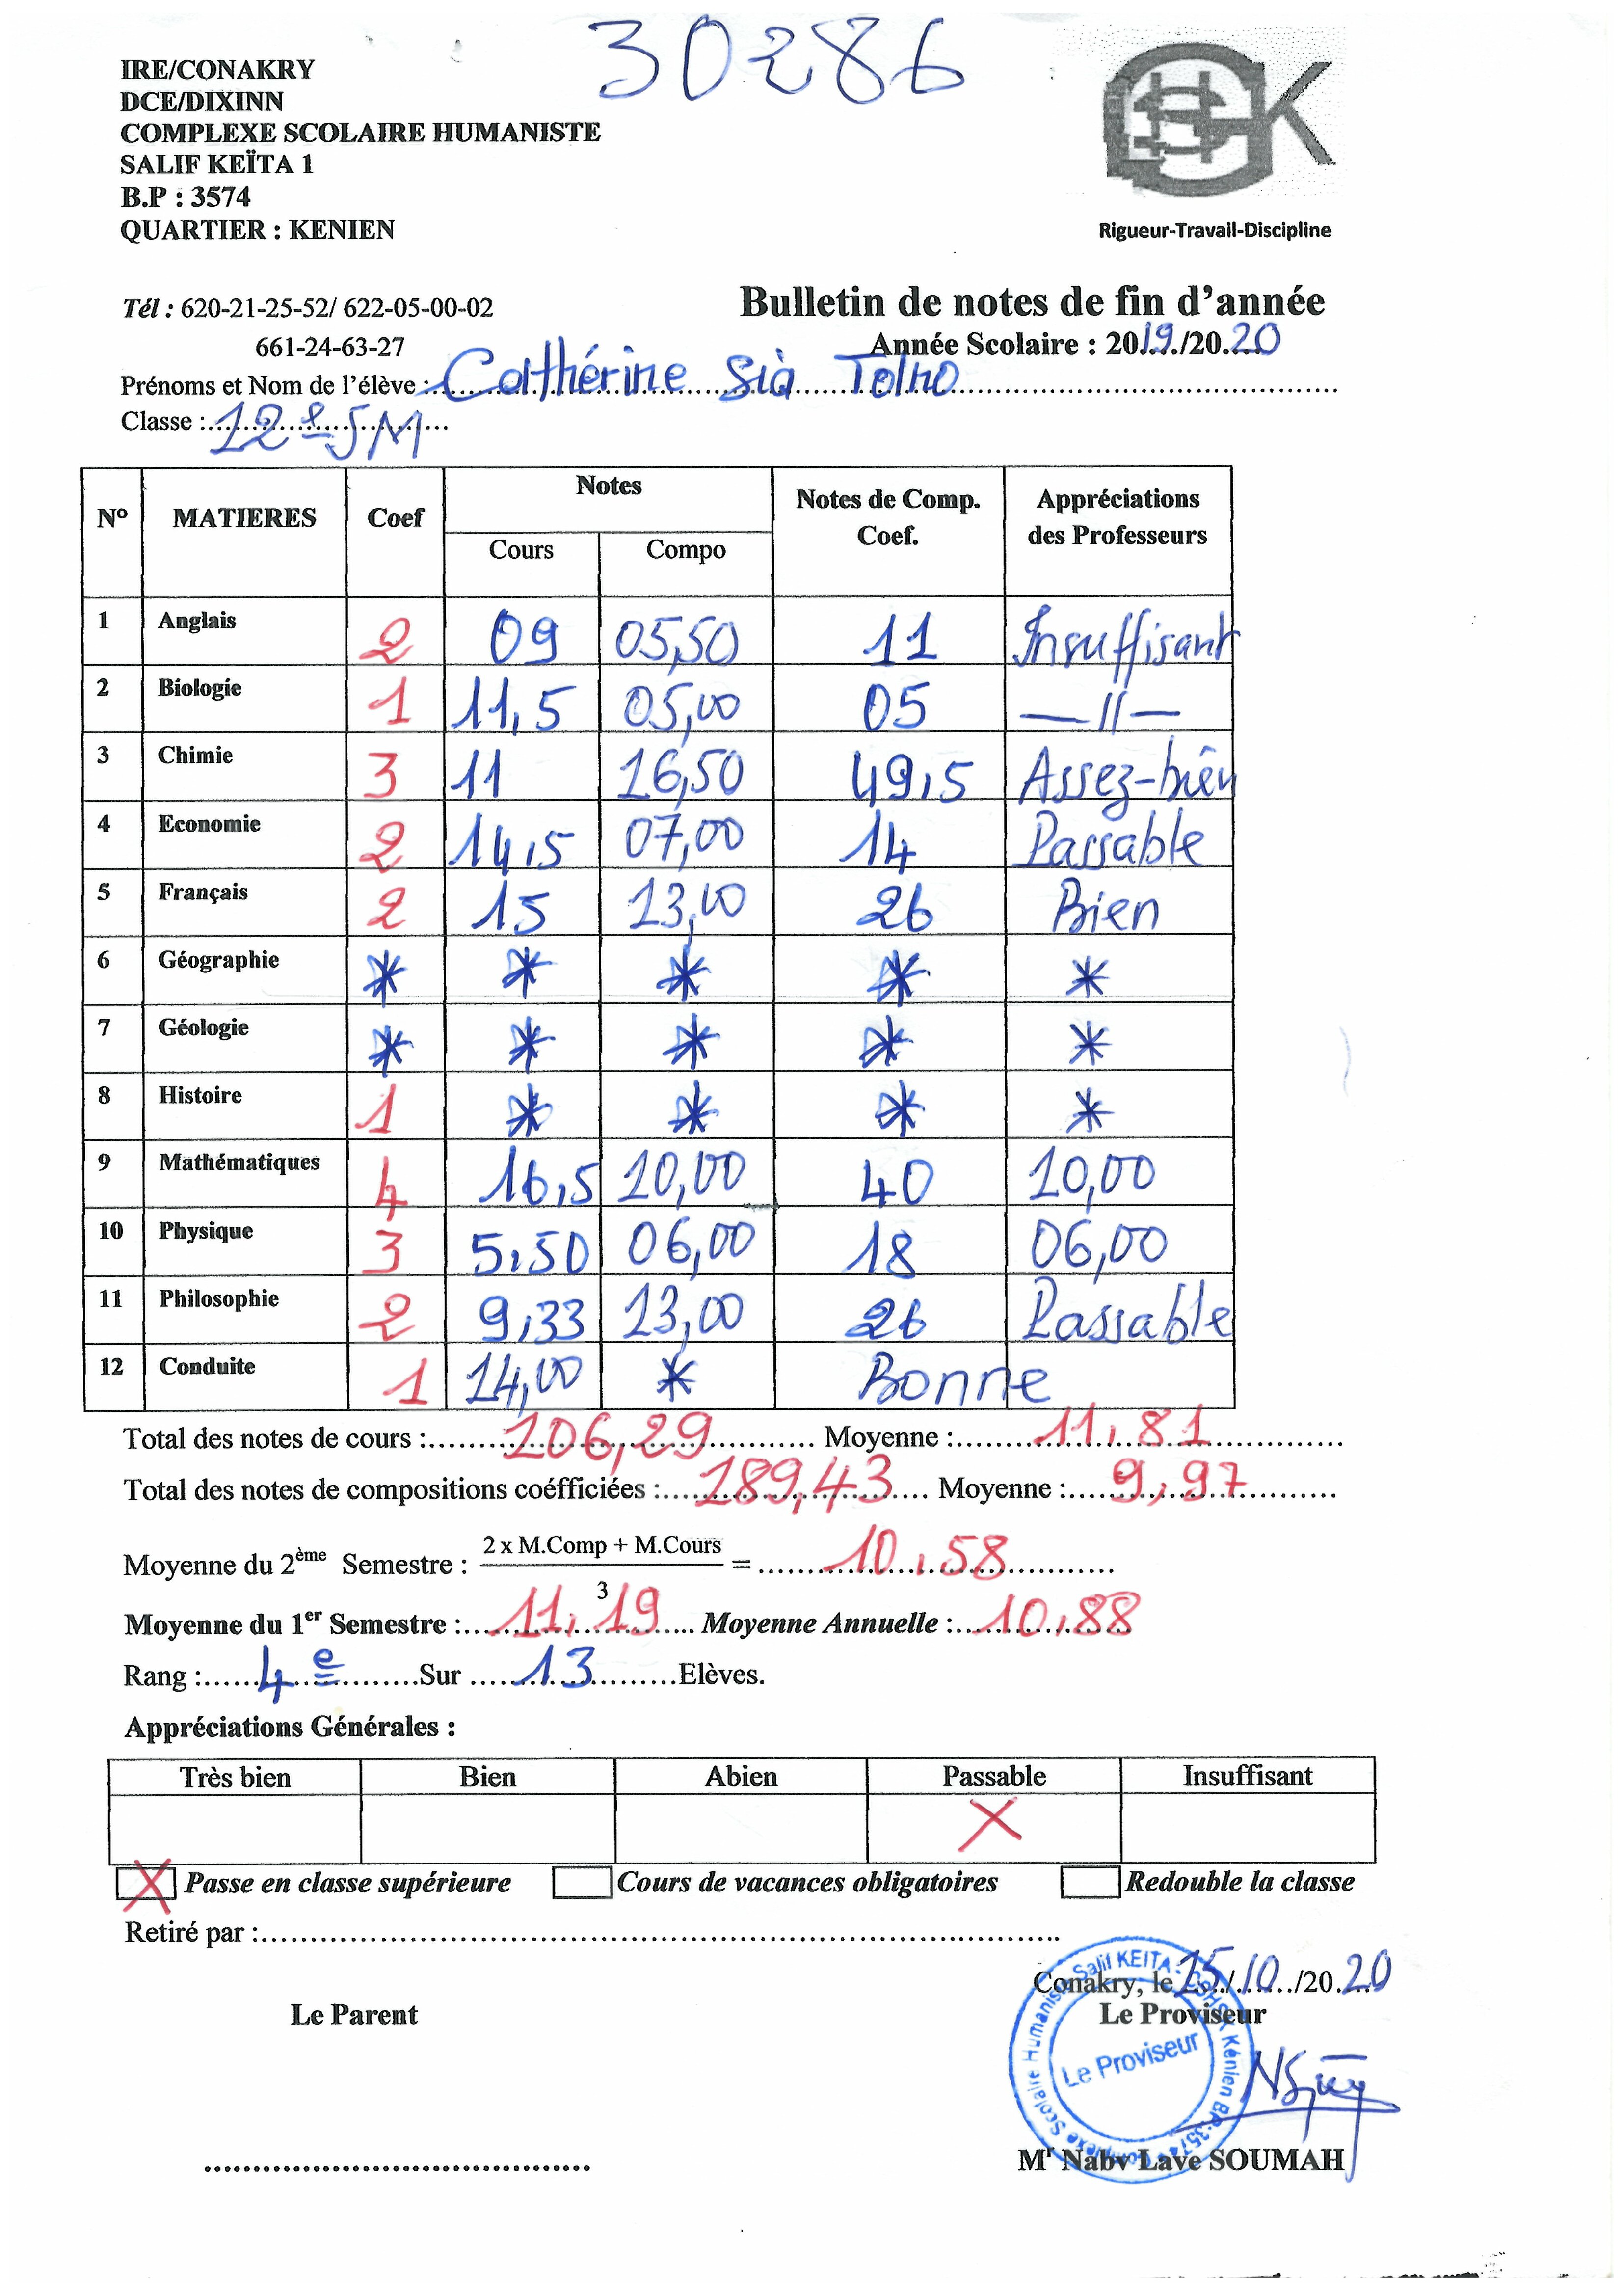 30286
IRE/CONAKRY
DCE/DIXINN
COMPLEXE SCOLAIRE HUMANISTE
SALIF KEÏTA 1
B.P : 3574
QUARTIER : KENIEN
Rigueur-Travail-Discipline
Tél : 620-21-25-52/ 622-05-00-02
661-24-63-27
Bulletin de notes de fin d'année
Année Scolaire : 2019/20.20
Prénoms et Nom de l'élève : Cathérine Sia Tolno
Classe : 12e SM
N° MATIERES Coef Notes Notes de Comp. Coef. Appréciations des Professeurs
Cours Compo
1 Anglais 2 09 05,50 11 Insuffisant
2 Biologie 1 11,5 05,00 05 —//—
3 Chimie 3 11 16,50 49,5 Assez-bien
4 Economie 2 14,5 07,00 14 Passable
5 Français 2 15 13,00 26 Bien
6 Géographie * * * * *
7 Géologie * * * * *
8 Histoire 1 * * * *
9 Mathématiques 4 16,5 10,00 40 10,00
10 Physique 3 5,50 06,00 18 06,00
11 Philosophie 2 9,33 13,00 26 Passable
12 Conduite 1 14,00 * Bonne
Total des notes de cours : 106,29 Moyenne : 11,81
Total des notes de compositions coéfficiées : 189,43 Moyenne : 9,97
Moyenne du 2ème Semestre : 2 x M.Comp + M.Cours / 3 = 10,58
Moyenne du 1er Semestre : 11,19 Moyenne Annuelle : 10,88
Rang : 4e Sur 13 Elèves.
Appréciations Générales :
Très bien Bien Abien Passable Insuffisant
X
X Passe en classe supérieure Cours de vacances obligatoires Redouble la classe
Retiré par :
Conakry, le 15/10/20.20
Le Parent Le Proviseur
Complexe Scolaire Humaniste Salif KEITA - CSHSK Kénien BP:3574
Le Proviseur
Mr Naby Laye SOUMAH